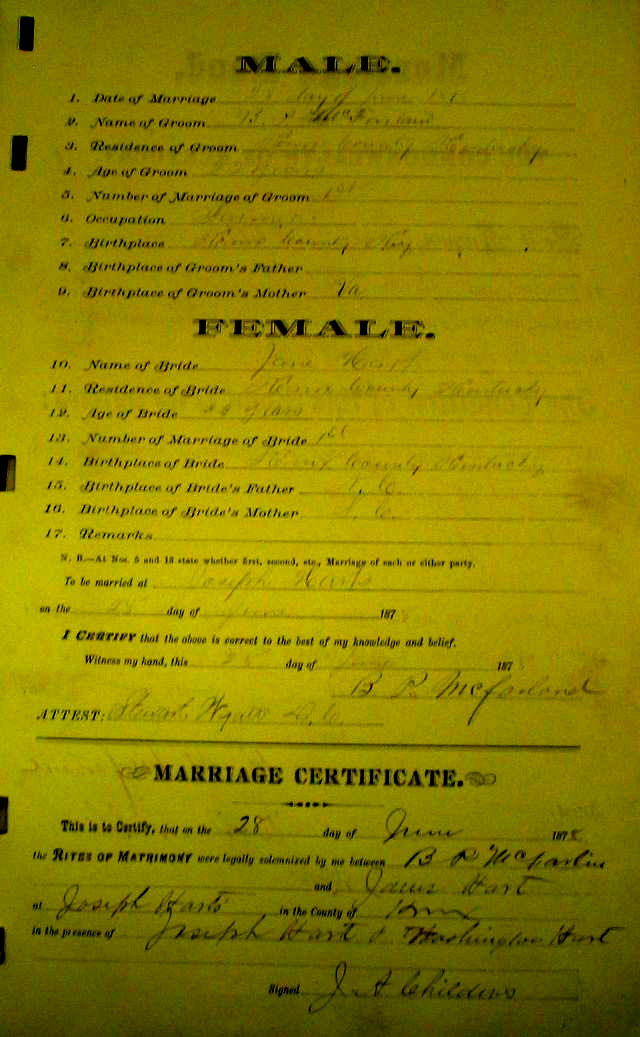 MALE.
1. Date of Marriage 28 day of June 187
2. Name of Groom B. R McFarland
3. Residence of Groom Knox County Kentucky
4. Age of Groom
5. Number of Marriage of Groom 1st
6. Occupation Farmer
7. Birthplace Knox County Ky
8. Birthplace of Groom's Father
9. Birthplace of Groom's Mother Va
FEMALE.
10. Name of Bride Jane Hart
11. Residence of Bride Knox County Kentucky
12. Age of Bride years
13. Number of Marriage of Bride 1st
14. Birthplace of Bride Knox County Kentucky
15. Birthplace of Bride's Father N. C.
16. Birthplace of Bride's Mother N. C.
17. Remarks
N. B.—At Nos. 5 and 13 state whether first, second, etc., Marriage of each or either party.
To be married at Joseph Harts
on the 28 day of June 1878
I CERTIFY that the above is correct to the best of my knowledge and belief.
Witness my hand, this 28 day of June 1878
B R McFarland
ATTEST: Stewart D. C.
MARRIAGE CERTIFICATE.
This is to Certify, that on the 28 day of June 1878
the RITES OF MATRIMONY were legally solemnized by me between B R McFarlin
and Janes Hart
at Joseph Harts in the County of Knox
in the presence of Joseph Hart & Washington Hart
Signed J A Childers